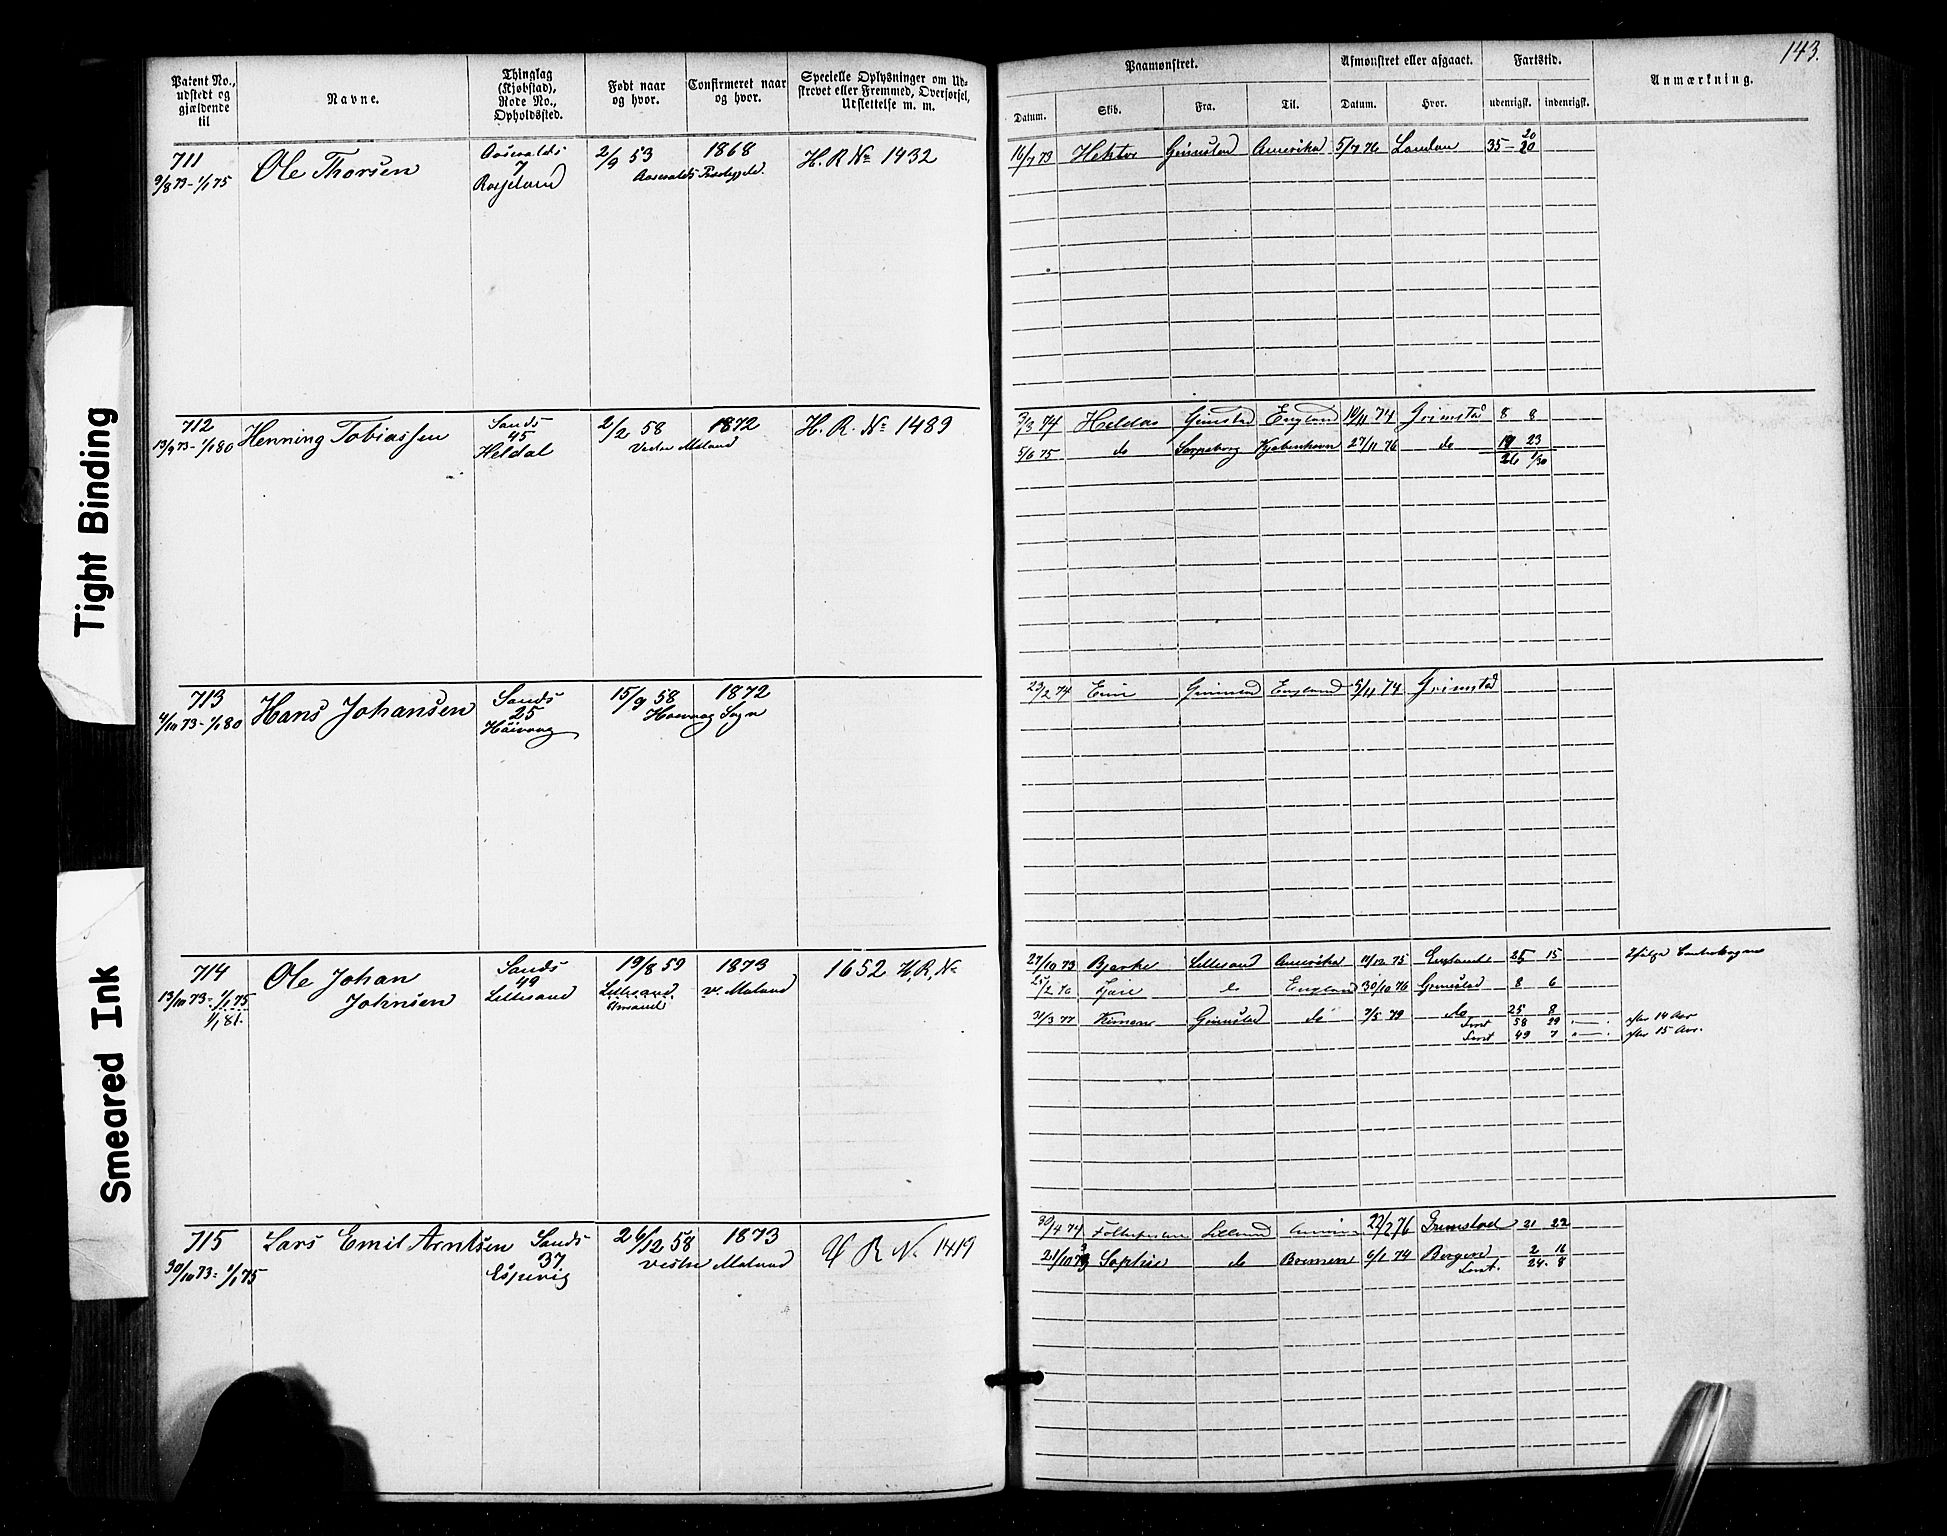 143.
Patent No., udstedt og gjældende til
Navne.
Thinglag (Kjøbstad), Rode No., Opholdssted.
Født naar og hvor.
Confirmeret naar og hvor.
Specielle Oplysninger om Udskrevet eller Fremmed, Overførsel, Udslettelse m. m.
Paamønstret.
Afmønstret eller afgaaet.
Fartstid.
Anmærkning.
Datum. Skib. Fra. Til. Datum. Hvor. udenrigsk. indenrigsk.
711
9/8 73 - 1/1 75
Ole Thorsen
7
2/9 53
1868
H. R. No 1432
16/7 73 Hektor Grimstad Amerika 5/7 76 London 35 - 20
20
712
13/9 73 - 1/1 80
Henning Tobiassen
Sands
45
Heldal
2/2 58
Vestre Moland
1872
H. R. No 1489
3/3 74 Heldas Grimstad England 10/11 74 Grimstad 8 8
5/6 75 do Sarpsborg Kjøbenhavn 27/11 76 do 19 23
26 1/30
713
4/10 73 - 1/1 80
Hans Johansen
Sands
25
Höivaag
15/9 58
1872
Sogn
23/2 74 Grimstad England 5/11 74 Grimstad
714
13/10 73 - 1/1 75
1/1 81.
Ole Johan
Johnsen
Sands
49
Lillesand
19/8 59
Lillesand
1873
V. Moland
1652 H. R. No
27/10 73 Bjerke Lillesand Amerika 14/12 75 25 15
25/2 76 do England 30/10 76 Grimstad 8 6
31/3 77 Grimstad do 7/5 79 do 25 8
58 29 efter 14 Aar
49 7 efter 15 Aar.
715
30/10 73 - 1/1 75
Lars Emil Arntsen
Sands
37
Espevig
26/12 58
Vestre Moland
1873
H R No 1419
30/4 74 22/2 76 Grimstad 21 22
21/10 73 Sophie do Bremen 6/1 74 Bergen 2 16
24. 8
Tight Binding
Smeared Ink